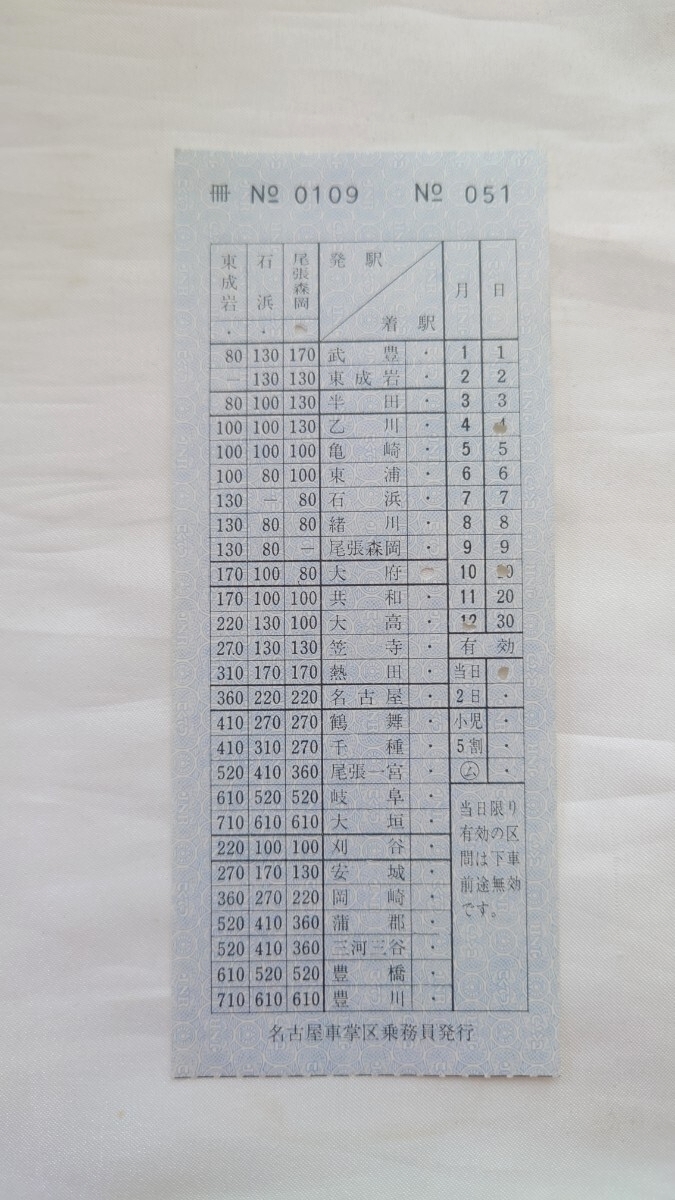 冊 № 0109 № 051
東成岩 石浜 尾張森岡 発駅 着駅 月 日
・ ・
80 130 170 武豊 ・ 1 1
— 130 130 東成岩 ・ 2 2
80 100 130 半田 ・ 3 3
100 100 130 乙川 ・ 4
100 100 100 亀崎 ・ 5 5
100 80 100 東浦 ・ 6 6
130 — 80 石浜 ・ 7 7
130 80 80 緒川 ・ 8 8
130 80 — 尾張森岡 ・ 9 9
170 100 80 大府 10
170 100 100 共和 ・ 11 20
220 130 100 大高 ・ 12 30
270 130 130 笠寺 ・ 有効
310 170 170 熱田 ・ 当日
360 220 220 名古屋 ・ 2日 ・
410 270 270 鶴舞 ・ 小児 ・
410 310 270 千種 ・ 5割 ・
520 410 360 尾張一宮 ・ ㋰ ・
610 520 520 岐阜 ・
710 610 610 大垣 ・
220 100 100 刈谷 ・
270 170 130 安城 ・
360 270 220 岡崎 ・
520 410 360 蒲郡 ・
520 410 360 三河三谷 ・
610 520 520 豊橋 ・
710 610 610 豊川 ・
当日限り
有効の区
間は下車
前途無効
です。
名古屋車掌区乗務員発行